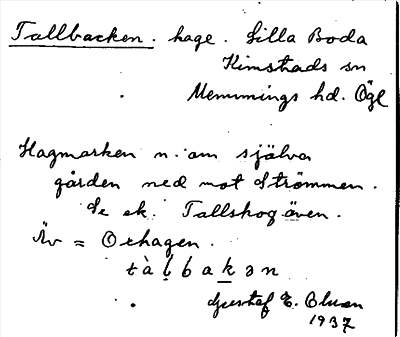 Tallbacken. hage. Lilla Boda
Kimstads sn
Memmings hd. Ögl
Hagmarken n. om själva
gården ned mot Strömmen.
Se ek. Tallskog även.
Äv = Oxhagen.
tàl̥bakən
Gustaf E.
1937